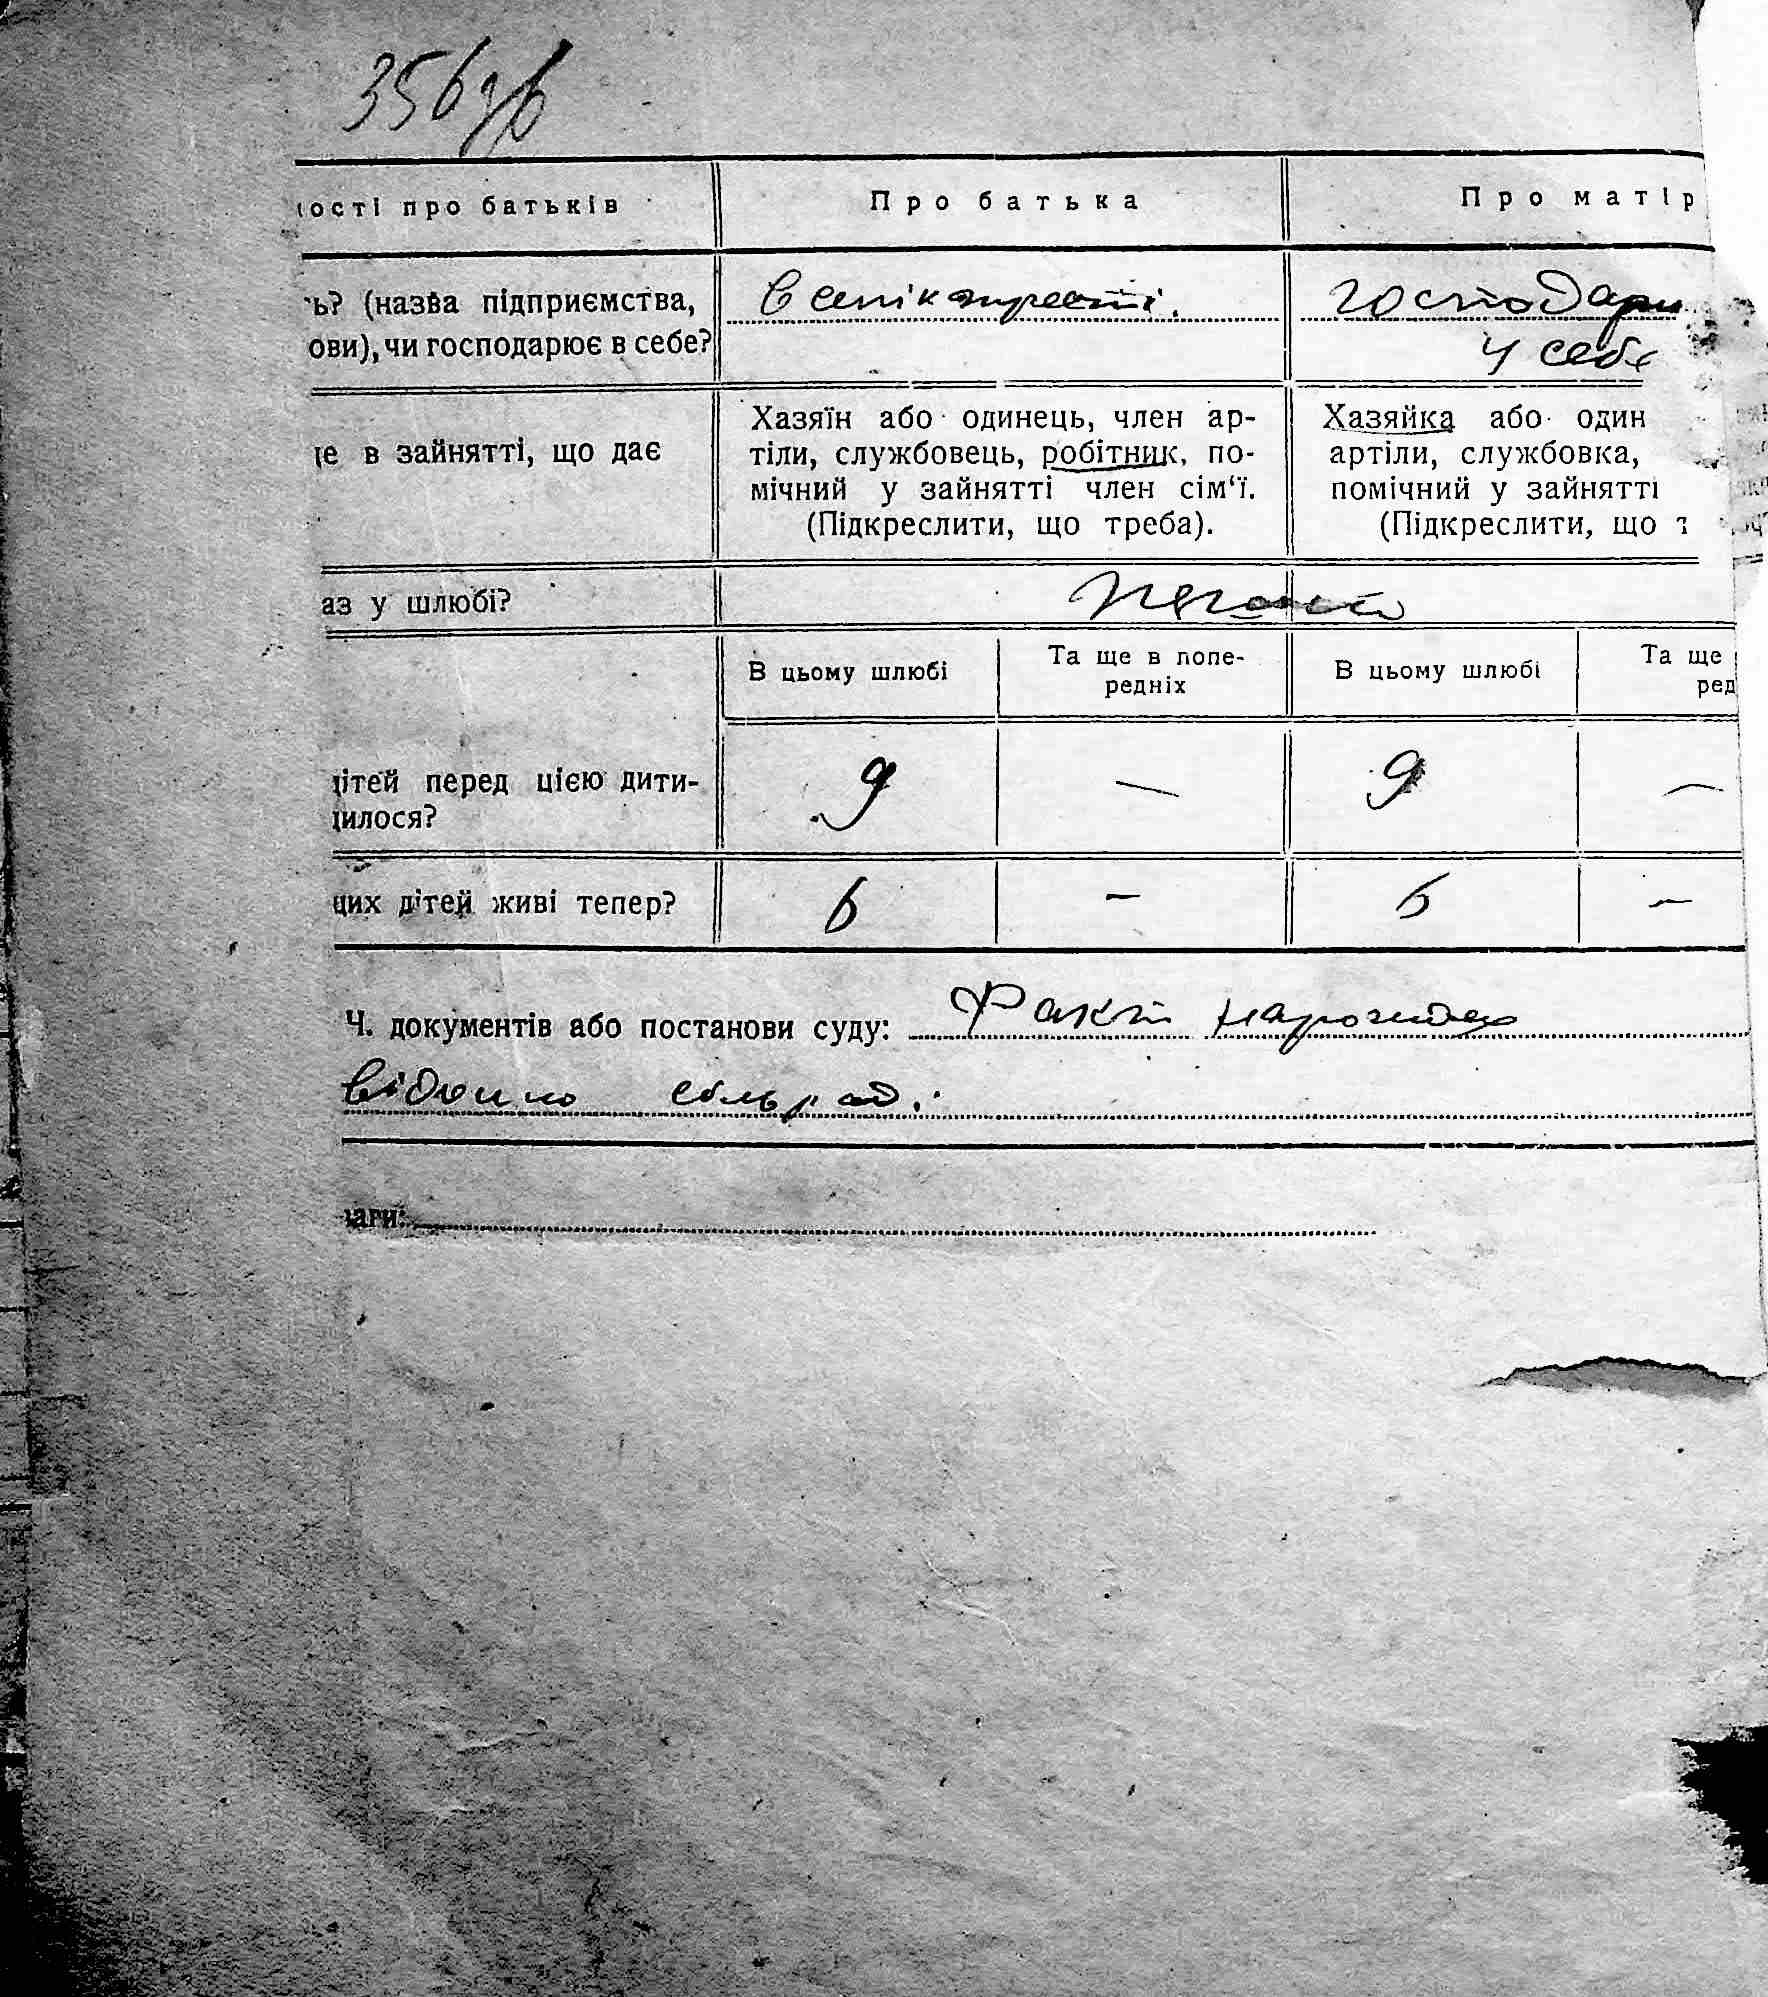 356зв
ності про батьків
Про батька
Про матір
ь? (назва підприємства,
ови), чи господарює в себе?
в
господари
у себе
це в зайнятті, що дає
Хазяїн або одинець, член ар-
тіли, службовець, робітник, по-
мічний у зайнятті член сім‘ї.
(Підкреслити, що треба).
Хазяйка або один
артіли, службовка,
помічний у зайнятті
(Підкреслити, що т
аз у шлюбі?
В цьому шлюбі
Та ще в попе-
редніх
В цьому шлюбі
Та ще
ред
дітей перед цією дити-
дилося?
9
—
9
—
цих дітей живі тепер?
6
—
6
—
Ч. документів або постанови суду: Факт
відомо сільрад.
ваги: